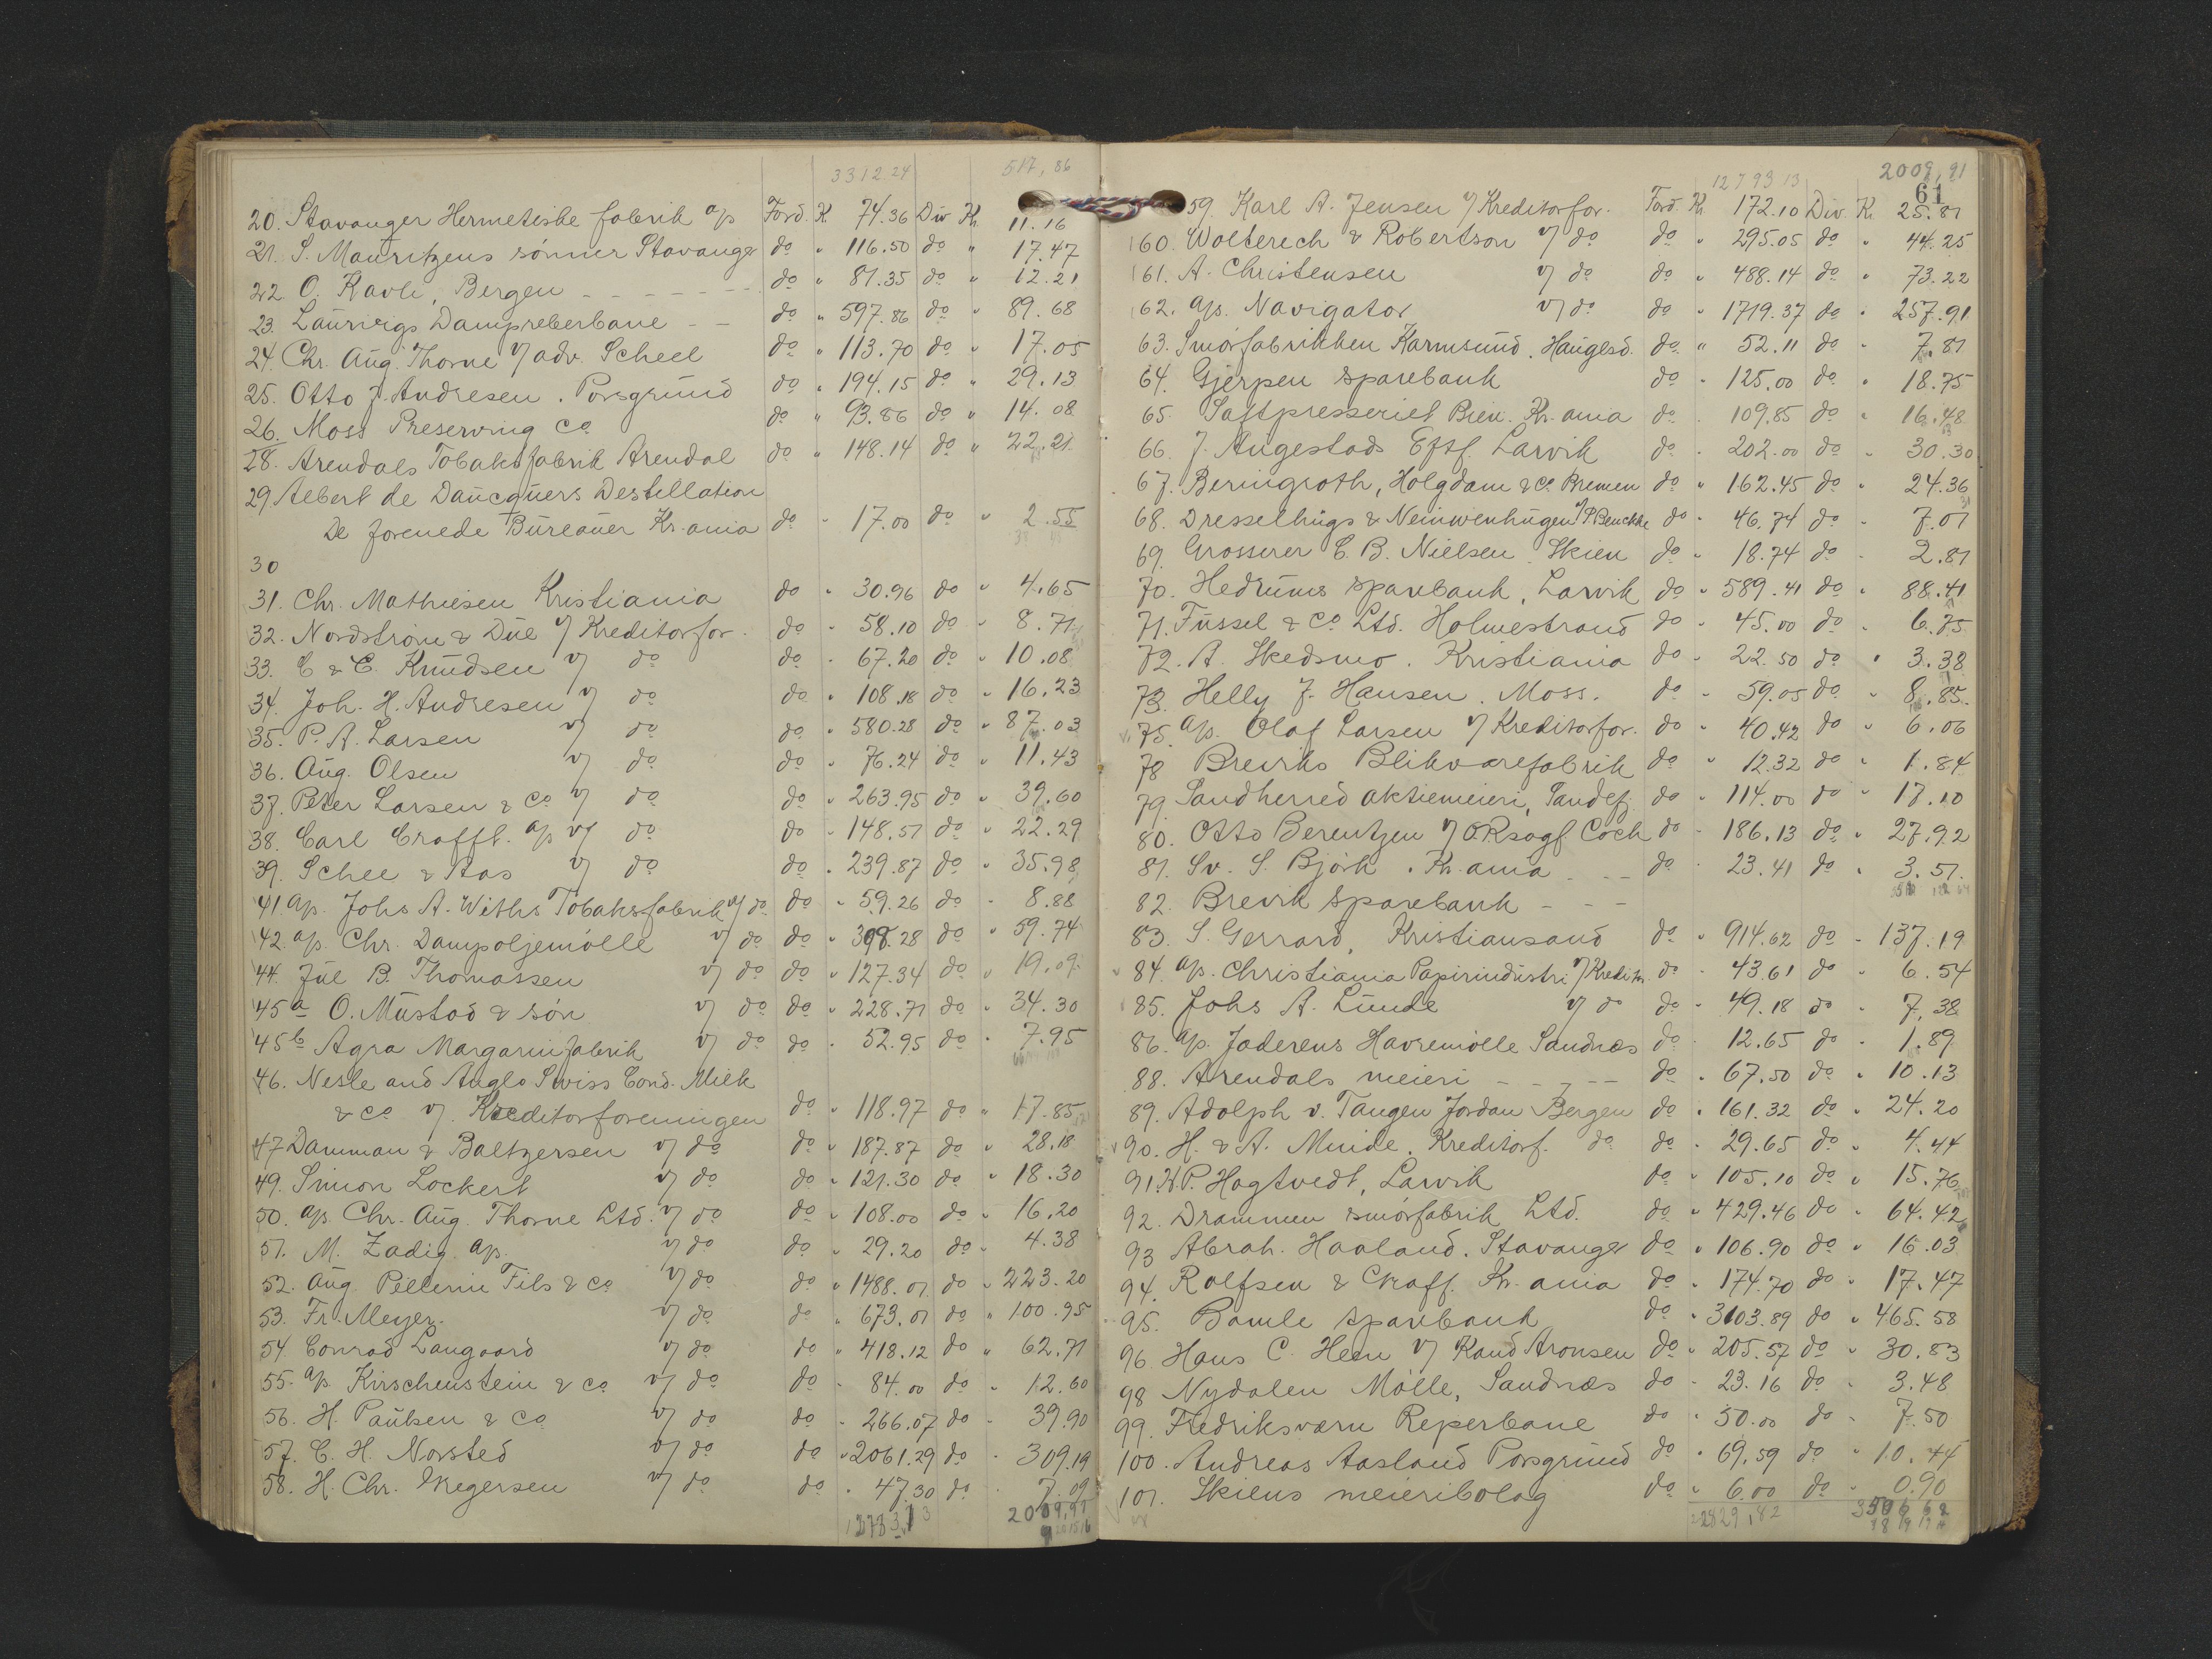 3312.24 517,86
20. Stavanger Hermetiske fabrik a/s Ford. K. 74.36 Div Kr. 11.16
21. S. Mauritzens sönner Stavanger do " 116.50 do " 17.47
22. O. Kavli, Bergen - - - - - - do " 81.35 do " 12.21
23. Laurvigs Dampreberbane - - do " 597.86 do " 89.68
24. Chr. Aug. Thorne v/ adv. Scheel do " 113.70 do " 17.05
25. Otto J. Andresen. Porsgrund do " 194.15 do " 29.13
26. Moss Preserving Co do " 93.86 do " 14.08
28. Arendals Tobaksfabrik Arendal do " 148.14 do " 22.21
29 Albert de Dancquers Destillation
De forenede Bureauer Kr.ania do " 17.00 do " 2.55
30
31. Chr. Mathiesen Kristiania do " 30.96 do " 4.65
32. Nordströn & Due v/ Kreditorfor. do " 58.10 do " 8.71
33. C & C. Knudsen v/ do do " 67.20 do " 10.08
34. Joh. H. Andresen v/ do do " 108.18 do " 16.23
35. P. A. Larsen v/ do do " 580.28 do " 87.03
36. Aug. Olsen v/ do do " 76.24 do " 11.43
37. Peter Larsen & Co v/ do do " 263.95 do " 39.60
38. Carl Crafft. a/s v/ do do " 148.57 do " 22.29
39. Schee & Aas v/ do do " 239.87 do " 35.98
41. a/s. Johs A. Withs Tobaksfabrik v/ do do " 59.26 do " 8.88
42. a/s Chr. Dampoljemölle v/ do do " 398.28 do " 59.74
44. Jul B. Thomassen v/ do do " 127.34 do " 19.09
45a O. Mustad & sön v/ do do " 228.71 do " 34.30
45b Agra Margarinfabrik v/ do do " 52.95 do " 7.95
46. Nesle and Anglo Swiss Cond. Milk
& Co v/. Kreditorforeningen do " 118.97 do " 17.85
47 Damman & Baltzersen v/ do do " 187.87 do " 28.18
49. Simon Lockert v/ do do " 121.30 do " 18.30
50. a/s. Chr. Aug. Thorne Ltd. v/ do do " 108.00 do " 16.20
51. M. Zadig a/s. v/ do do " 29.20 do " 4.38
52. Aug. Pellerin Fils & Co v/ do do " 1488.01 do " 223.20
53. Fr. Meyer. v/ do do " 673.01 do " 100.95
54 Conrad Langaard v/ do do " 418.12 do " 62.71
55. a/s. Kirschenstein & Co v/ do do " 84.00 do " 12.60
56. H. Paulsen & Co v/ do do " 266.07 do " 39.90
57. C. H. Norsted v/ do do " 2061.29 do " 309.19
58. H. Chr. Gregersen v/ do do " 47.30 do " 7.09
2009,91
12793 13 2009,91
61
59. Karl A. Jensen v/ Kreditorfor. Ford. Kr 172.10 Div. K. 25.81
60. Wolterech & Robertson v/ do do " 295.05 do " 44.25
61. A. Christensen v/ do do " 488.14 do " 73.22
62. a/s. Navigator v/ do do " 1719.37 do " 257.91
63. Smörfabrikken Karmsund. Haugesd. do " 52.11 do " 7.81
64. Gjerpen sparebank do " 125.00 do " 18.75
65. Saftpresseriet Bien. Kr.ania do " 109.85 do " 16.48
66. J. Augestads Eftf. Larvik do " 202.00 do " 30.30
67. Beringroth, Holgdam & Co. Bremen do " 162.45 do " 24.36
68. Dresselhugs & Neinwenhugen v/ P. Benckke do " 46.74 do " 7.01
69. Grosserer C. B. Nielsen. Skien do " 18.74 do " 2.81
70. Hedrums sparebank, Larvik do " 589.41 do " 88.41
71. Fussel & Co Ltd. Holmestrand do " 45.00 do " 6.75
72. A. Skedsmo. Kristiania do " 22.50 do " 3.38
73. Helly J. Hansen. Moss. do " 59.05 do " 8.85.
75. a/s. Olaf Larsen v/ Kreditorfor. do " 40.42 do " 6.06
78 Breviks Blikvarefabrik do " 12.32 do " 1.84
79. Sandherred aktiemeieri, Sandef. do " 114.00 do " 17.10
80. Otto Berentzen v/ O.R.sagf Coch do " 186.13 do " 27.92
81. Sv. S. Björk. Kr.ania - - do " 23.41 do " 3.51.
82. Brevik sparebank - - -
83. S. Gerrard, Kristiansand do " 914.62 do - 137.19
84. a/s. Christiania Papirindustri v/ Kreditor. do " 43.61 do " 6.54
85. Johs A. Lunde v/ do do " 49.18 do " 7,38
86. a/s. Jaderens Havremölle Sandnæs do " 12.65 do - 1.89
88. Arendals meieri - - - - do " 67.50 do " 10.13
89. Adolph v. Tangen Jordan Bergen do " 161.32 do " 24.20
90. H. & A. Minde. Kreditorf. do do " 29.65 do " 4.44
91. H.P. Hagtvedt, Larvik do " 105.10 do " 15.76
92. Drammen smörfabrik Ltd. do " 429.46 do " 64.42
93 Abrah. Haaland. Stavanger do " 106.90 do " 16.03
94. Rolfsen & Graff. Kr.ania do " 174.70 do " 17.47
95. Bamle sparebank do " 3103.89 do " 465.58
96. Hans C. Heen v/ Kand Aronsen do " 205.57 do " 30.83
98 Nydalen Mölle, Sandnæs do " 23.16 do " 3.48
99. Fredriksværn Reperbane do " 50.00 do - 7.50
100. Andreas Aasland Porsgrund do " 69.59 do " 10.44
101. Skiens meieribolag do " 6.00 do " 0.90
22829,82 3506 62